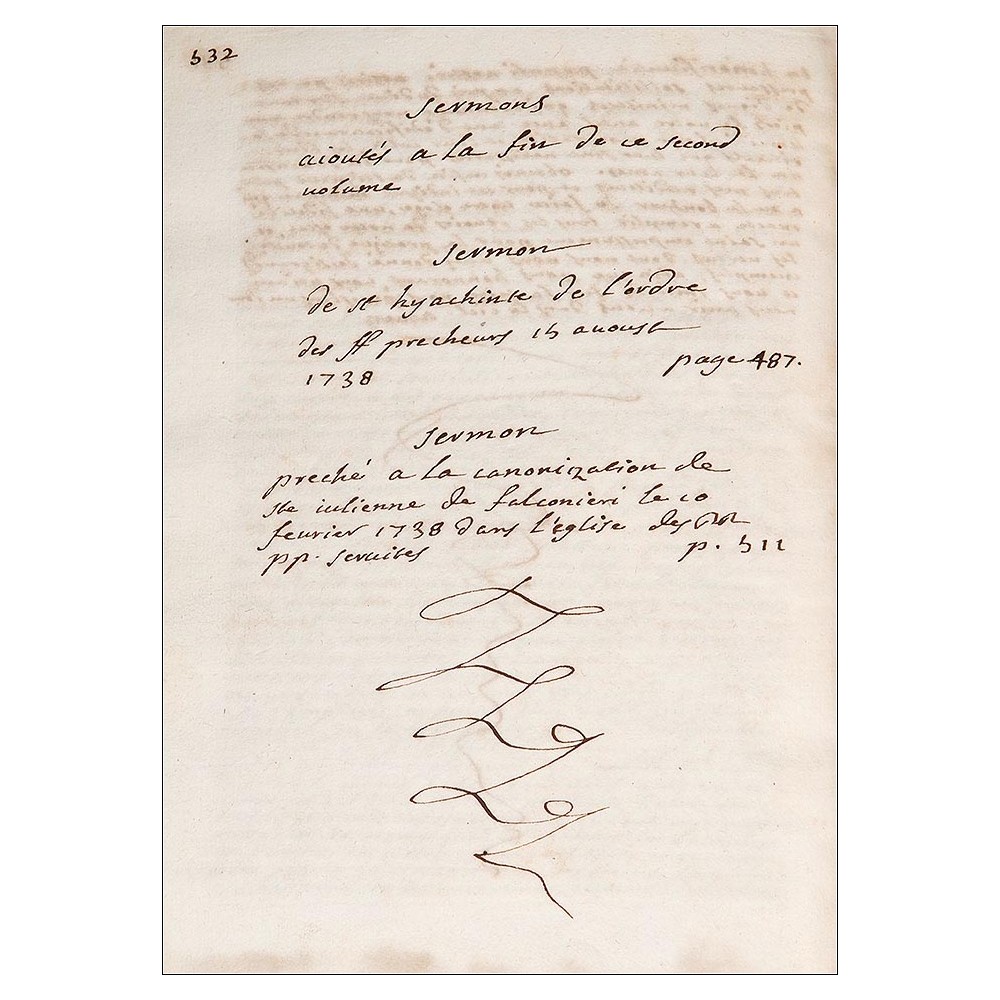 532
sermons
aioutés a la fin de ce second
volume
sermon
de st hyachinte de l'ordre
des ff precheurs 15 avoust
1738
page 487.
sermon
preché a la canonization de
ste iulienne de falconieri le 10
fevrier 1738 dans l'église des
pp. servites
p. 511